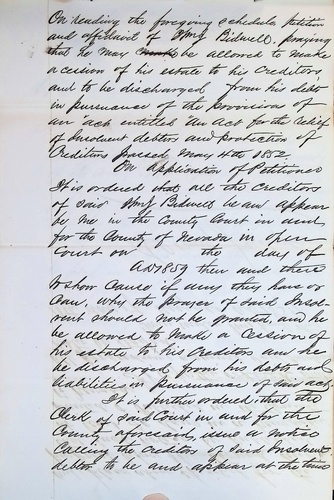 On reading the foregoing schedule, petition
and affidavit of Wm J Bidwell, praying
that he may be allowed to make
a cession of his estate to his creditors
and to be discharged from his debts
in pursuance of the provisions of
an "act entitled An Act for the relief
of Insolvent debtors and protection of
Creditors passed May 4th 1852.
On application of Petitioner
It is ordered that all the Creditors
of said Wm J Bidwell be and appear
be me in the County Court in and
for the County of Nevada in open
Court on the day of
AD 1859 then and there
to show cause if any they have or
can, why the prayer of said Insol-
vent should not be granted, and he
be allowed to make a Cession of
his estate to his Creditors and he
be discharged from his debts and
liabilities in pursuance of said act.
It is further ordered that the
Clerk of said Court in and for the
County aforesaid, issue a notice
Calling the creditors of said Insolvent
debtor to be and appear at the time